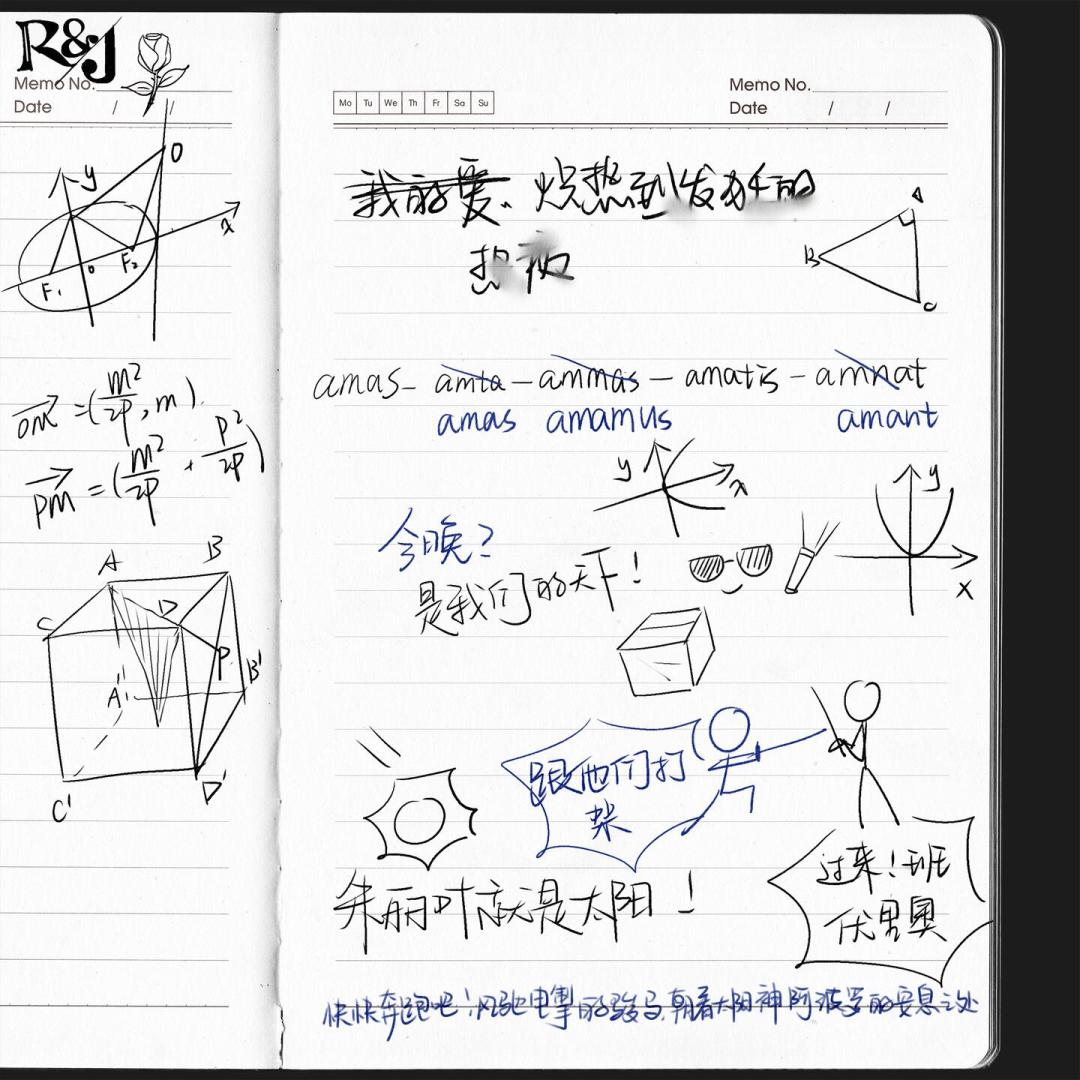 R&J
Memo No.
Date / /
y
O
x
F₁
o
F₂
OM = (m²/2p, m).
PM = (m²/2p + p²/2p)
A
B
C
D
P
A'
B'
C'
D'
Mo Tu We Th Fr Sa Su
Memo No.
Date / /
我的爱.炽热到发烧的
热病
A
B
C
amas- amta - ammas - amatis - amnat
amas amamus amant
y
x
y
x
今晚?
是我们的天下!
跟他们打
架
过来!班
伏里奥
朱丽叶就是太阳!
快快奔跑吧!风驰电掣的骏马,朝着太阳神阿波罗的安息之处